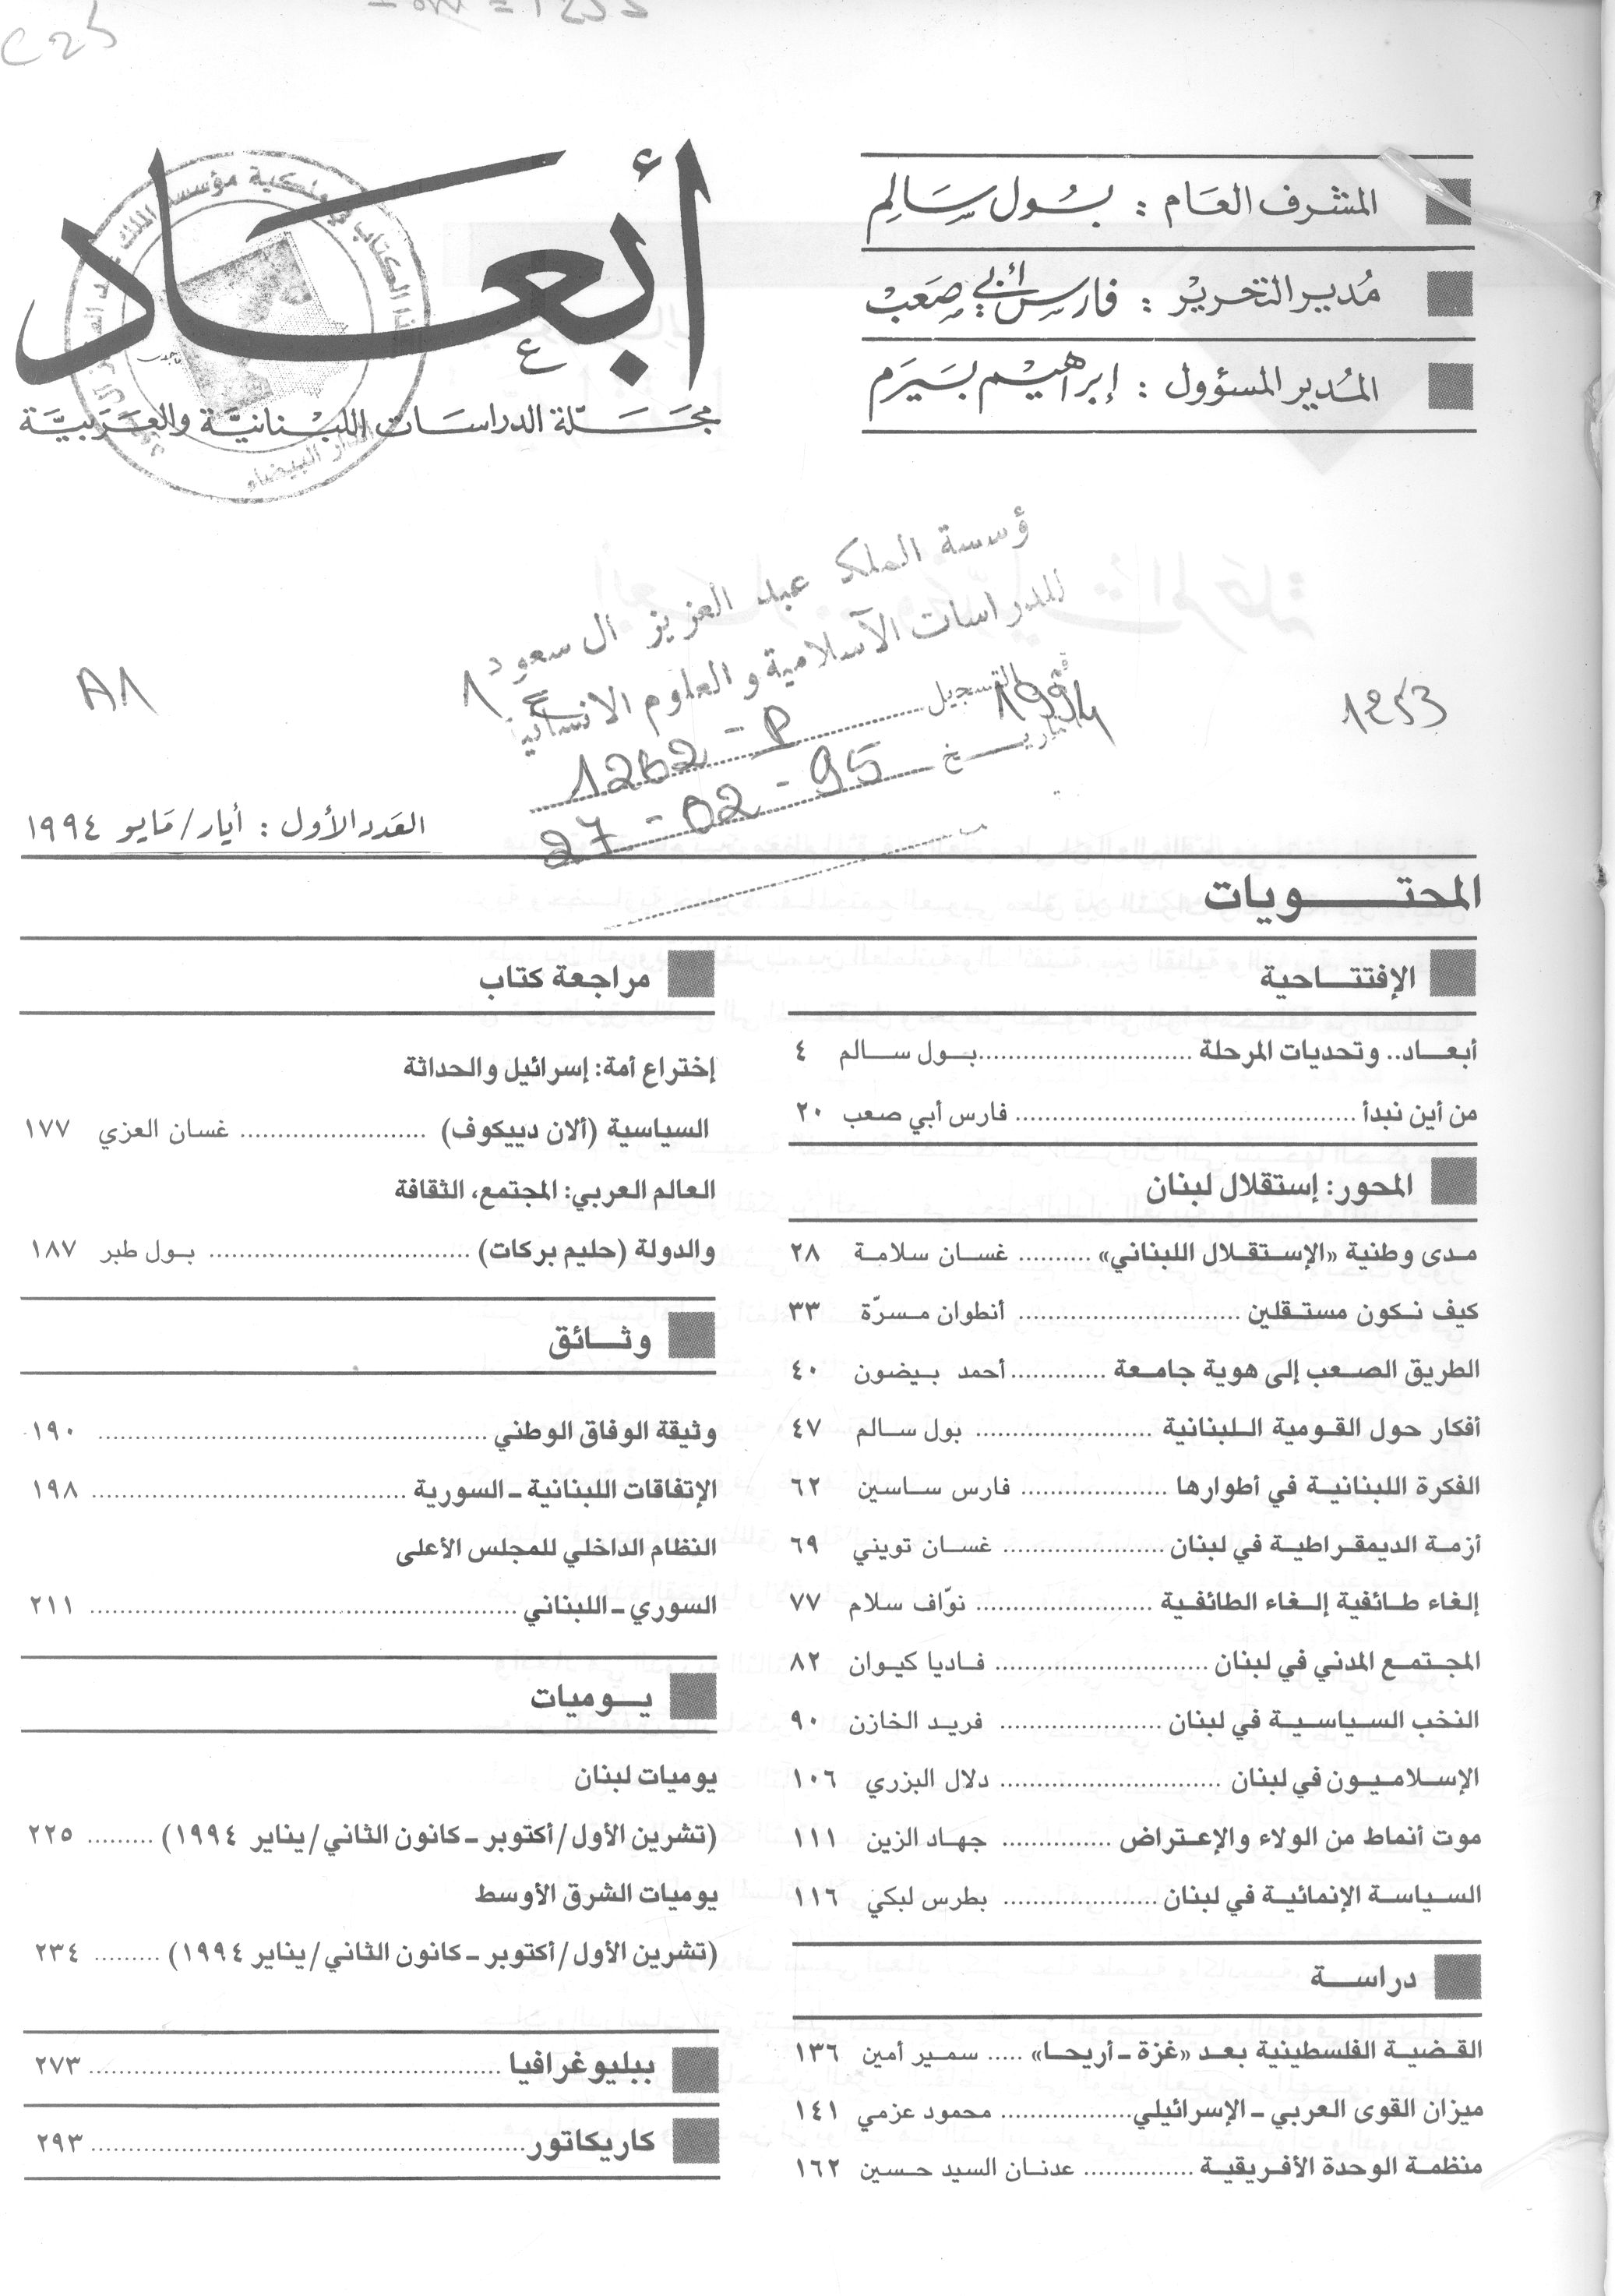 C25
المشرف العام : بول سالم
مدير التحرير : فارس أبي صعب
المدير المسؤول : إبراهيم بيرم
أبعاد
مجلة الدراسات اللبنانية والعربية
الدار البيضاء
ؤسسة الملك عبد العزيز ال سعود
للدراسات الاسلامية والعلوم الانسانية
التسجيل 1262 - P
تاريخ 27 - 02 - 95
A1
1
1994
1253
العدد الأول : أيار/مايو ١٩٩٤
المحتـــويات
الإفتتـاحية
أبعـاد.. وتحديات المرحلة ........ بـول سـالم ٤
من أين نبدأ ........ فارس أبي صعب ٢٠
المحور: إستقلال لبنان
مـدى وطنية «الإستقلال اللبناني» ........ غسـان سلامـة ٢٨
كيف نكون مستقلين ........ أنطوان مسرّة ٣٣
الطريق الصعب إلى هوية جامعة ........ أحمد بيضون ٤٠
أفكار حول القومية اللبنانية ........ بول سالم ٤٧
الفكرة اللبنانية في أطوارها ........ فارس ساسين ٦٢
أزمة الديمقراطية في لبنان ........ غسان تويني ٦٩
إلغاء طائفية إلغاء الطائفية ........ نوّاف سلام ٧٧
المجتمع المدني في لبنان ........ فاديا كيوان ٨٢
النخب السياسية في لبنان ........ فريد الخازن ٩٠
الإسلاميون في لبنان ........ دلال البزري ١٠٦
موت أنماط من الولاء والإعتراض ........ جهاد الزين ١١١
السياسة الإنمائية في لبنان ........ بطرس لبكي ١١٦
دراسـة
القضية الفلسطينية بعد «غزة ـ أريحا» ..... سمير أمين ١٣٦
ميزان القوى العربي ـ الإسرائيلي ........ محمود عزمي ١٤١
منظمة الوحدة الأفريقية ........ عدنان السيد حسين ١٦٢
مراجعة كتاب
إختراع أمة: إسرائيل والحداثة
السياسية (ألان دييكوف) ........ غسان العزي ١٧٧
العالم العربي: المجتمع، الثقافة
والدولة (حليم بركات) ........ بول طبر ١٨٧
وثـائق
وثيقة الوفاق الوطني ........ ١٩٠
الإتفاقات اللبنانية ـ السورية ........ ١٩٨
النظام الداخلي للمجلس الأعلى
السوري ـ اللبناني ........ ٢١١
يـوميات
يوميات لبنان
(تشرين الأول/أكتوبر ـ كانون الثاني/يناير ١٩٩٤) ........ ٢٢٥
يوميات الشرق الأوسط
(تشرين الأول/أكتوبر ـ كانون الثاني/يناير ١٩٩٤) ........ ٢٣٤
ببليوغرافيا ........ ٢٧٣
كاريكاتور ........ ٢٩٣